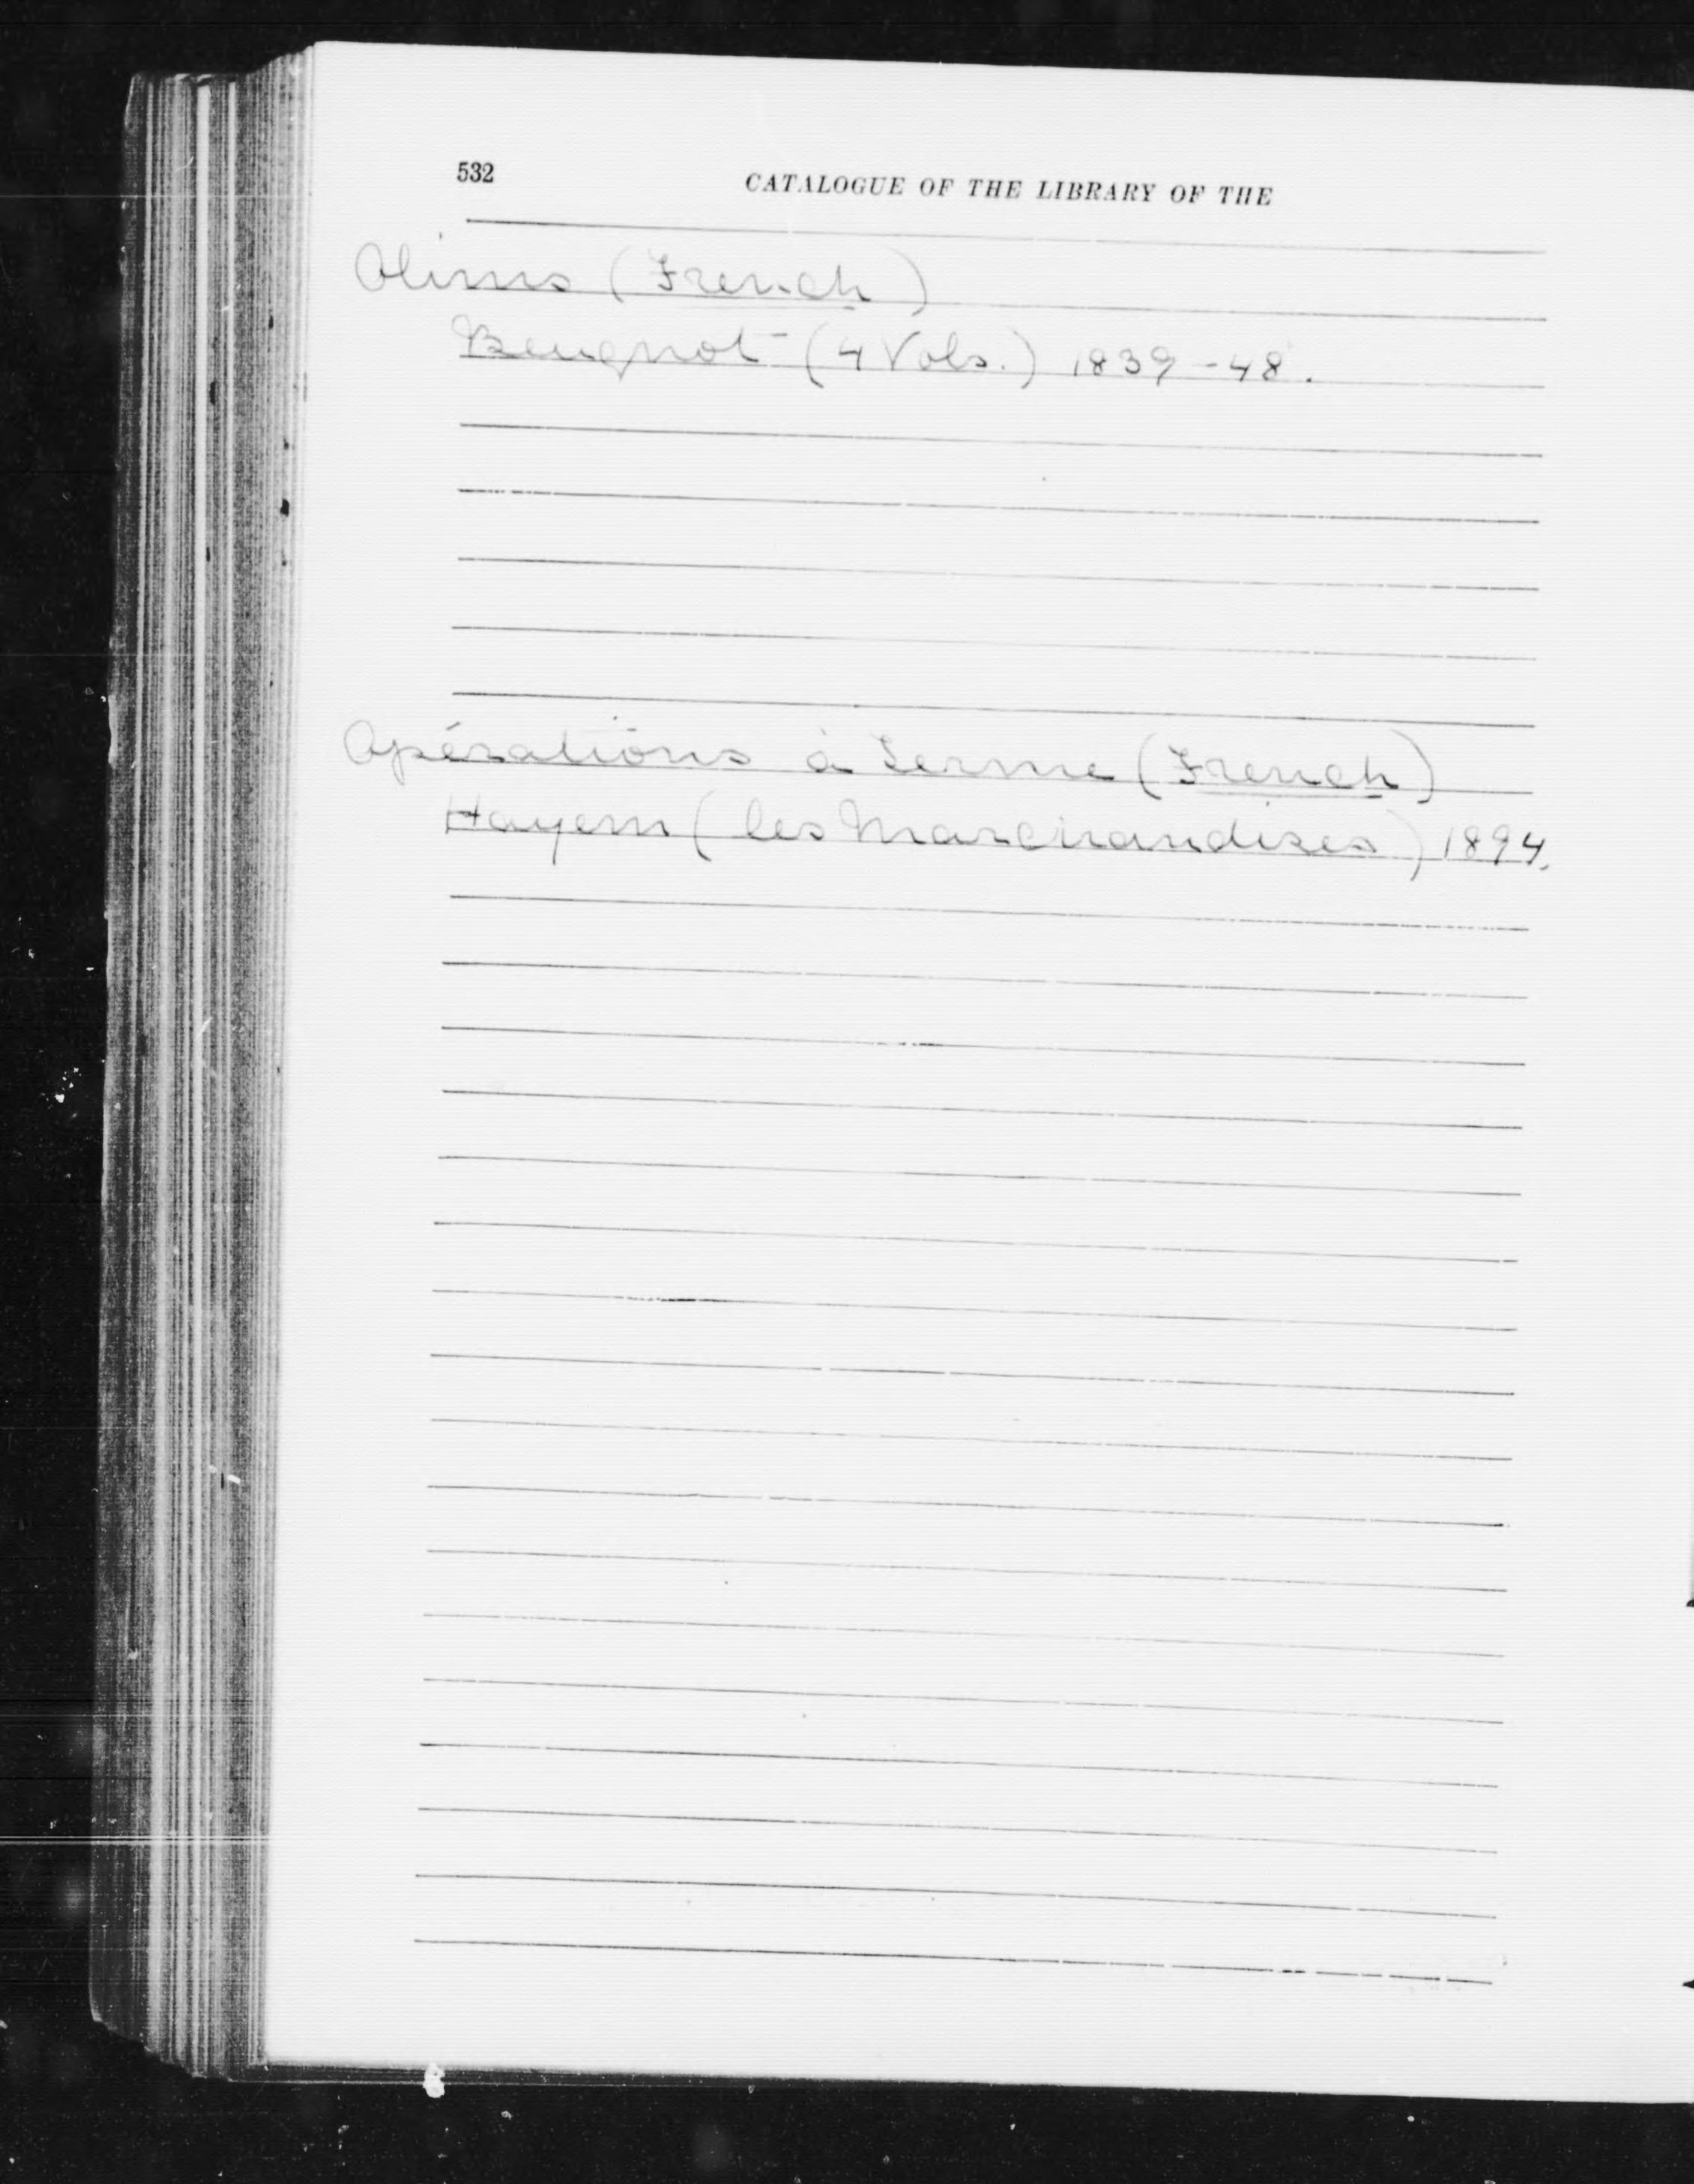 532 CATALOGUE OF THE LIBRARY OF THE
Olims (French)
Beugnot (4 Vols.) 1839-48.
Opérations à Terme (French)
Hayem (les Marchandises) 1894.